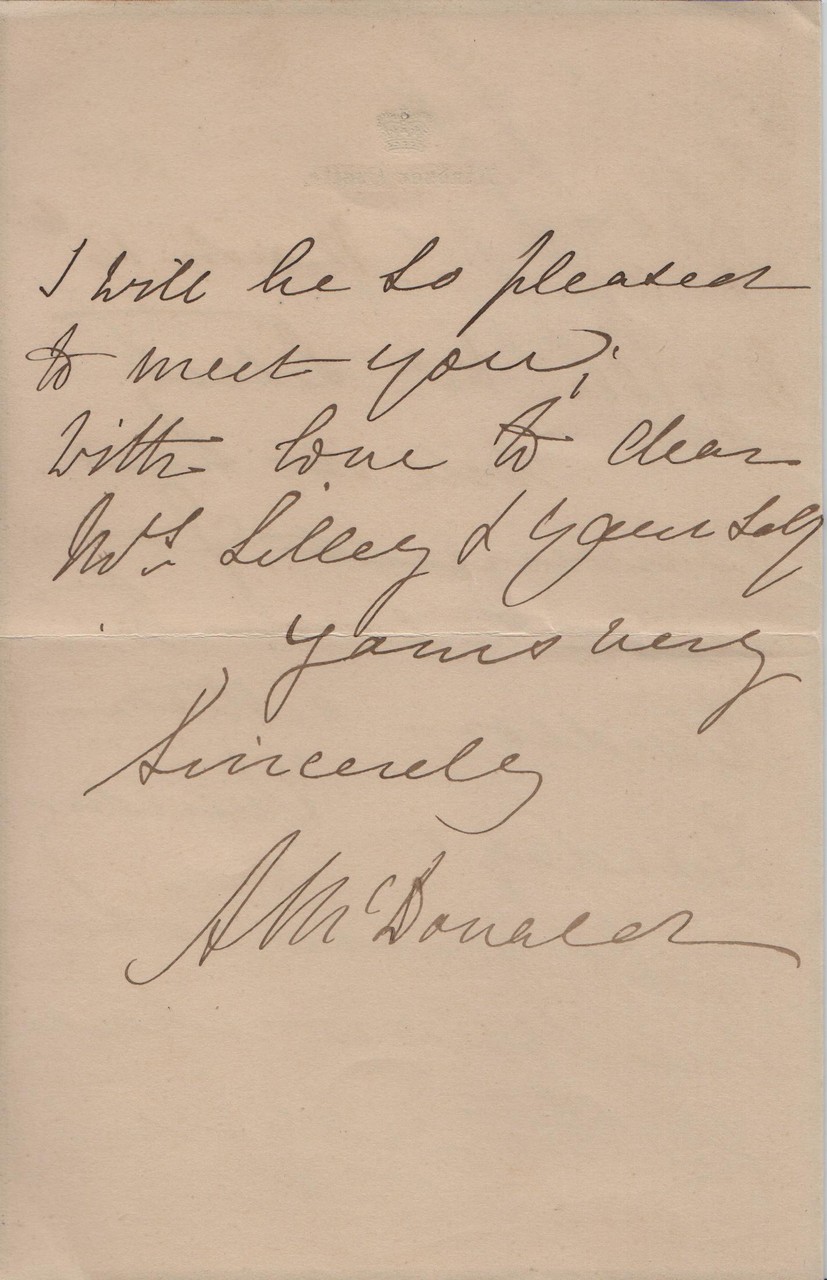 I will be so pleased
to meet you;
With love to dear
Mrs. Lilley & yourself
Yours very
Sincerely
A McDonald